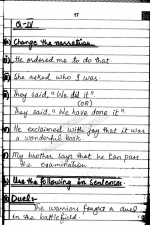 17
Q-IV
(a) Change the narration
i) He ordered me to do that
ii) She asked who I was.
iii) They said, "We did it".
(OR)
They said, "We have done it"
iv) He exclaimed with joy that it was
a wonderful book.
v) My brother says that he can pass
the examination.
(b) Use the following in sentences.
i) Duel:-
The warriors fought a duel
in the battlefield.